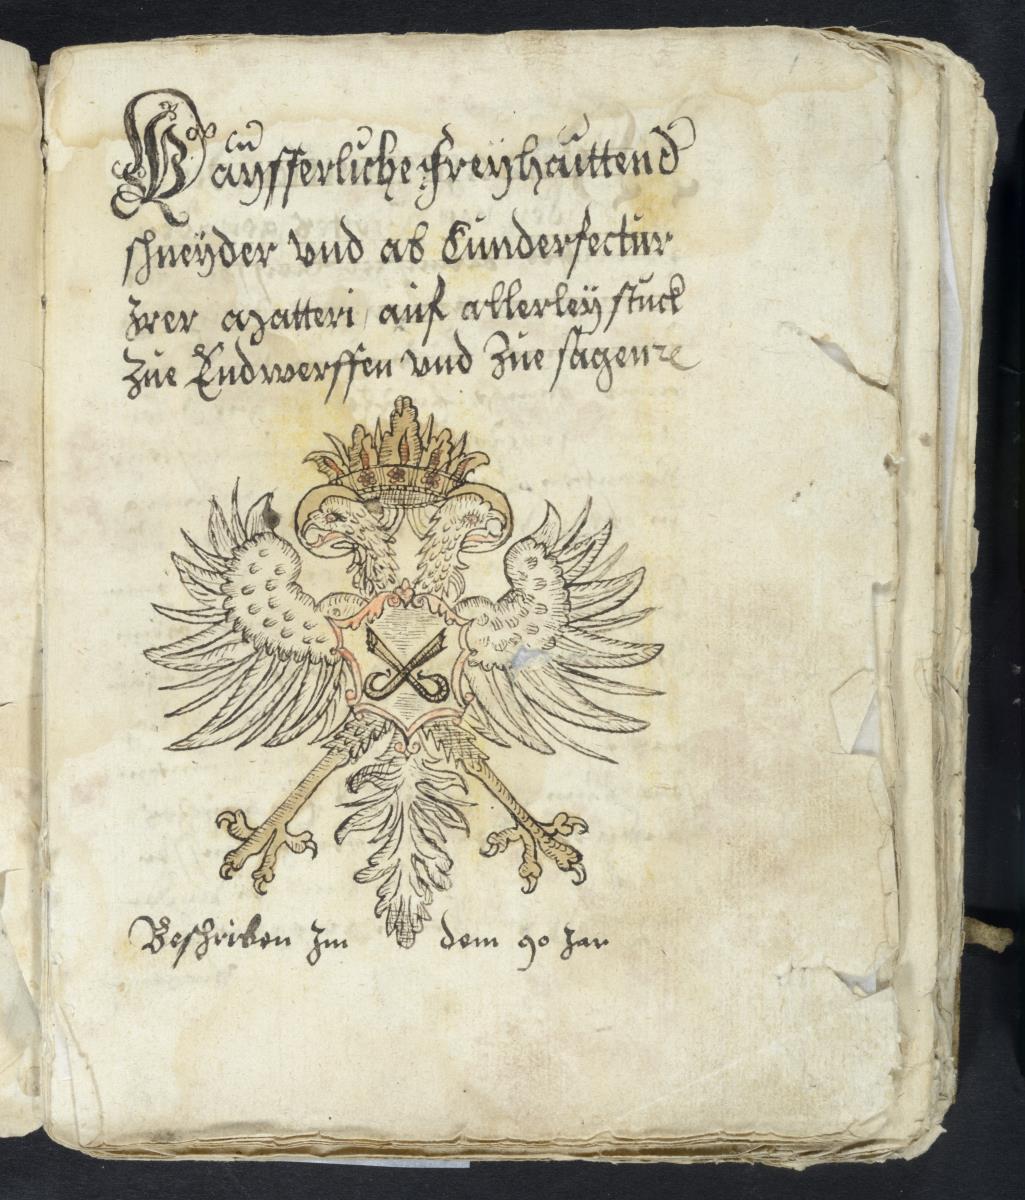 Kaÿsserliche Freÿhaŭttend
schneÿder vnd ab Cunderfectŭr
Irer Matteri, aŭf allerleÿ stŭck
Zŭe Endwerffen vnd Zŭe sagen ꝛc
Beschriben Im dem 90 Jar